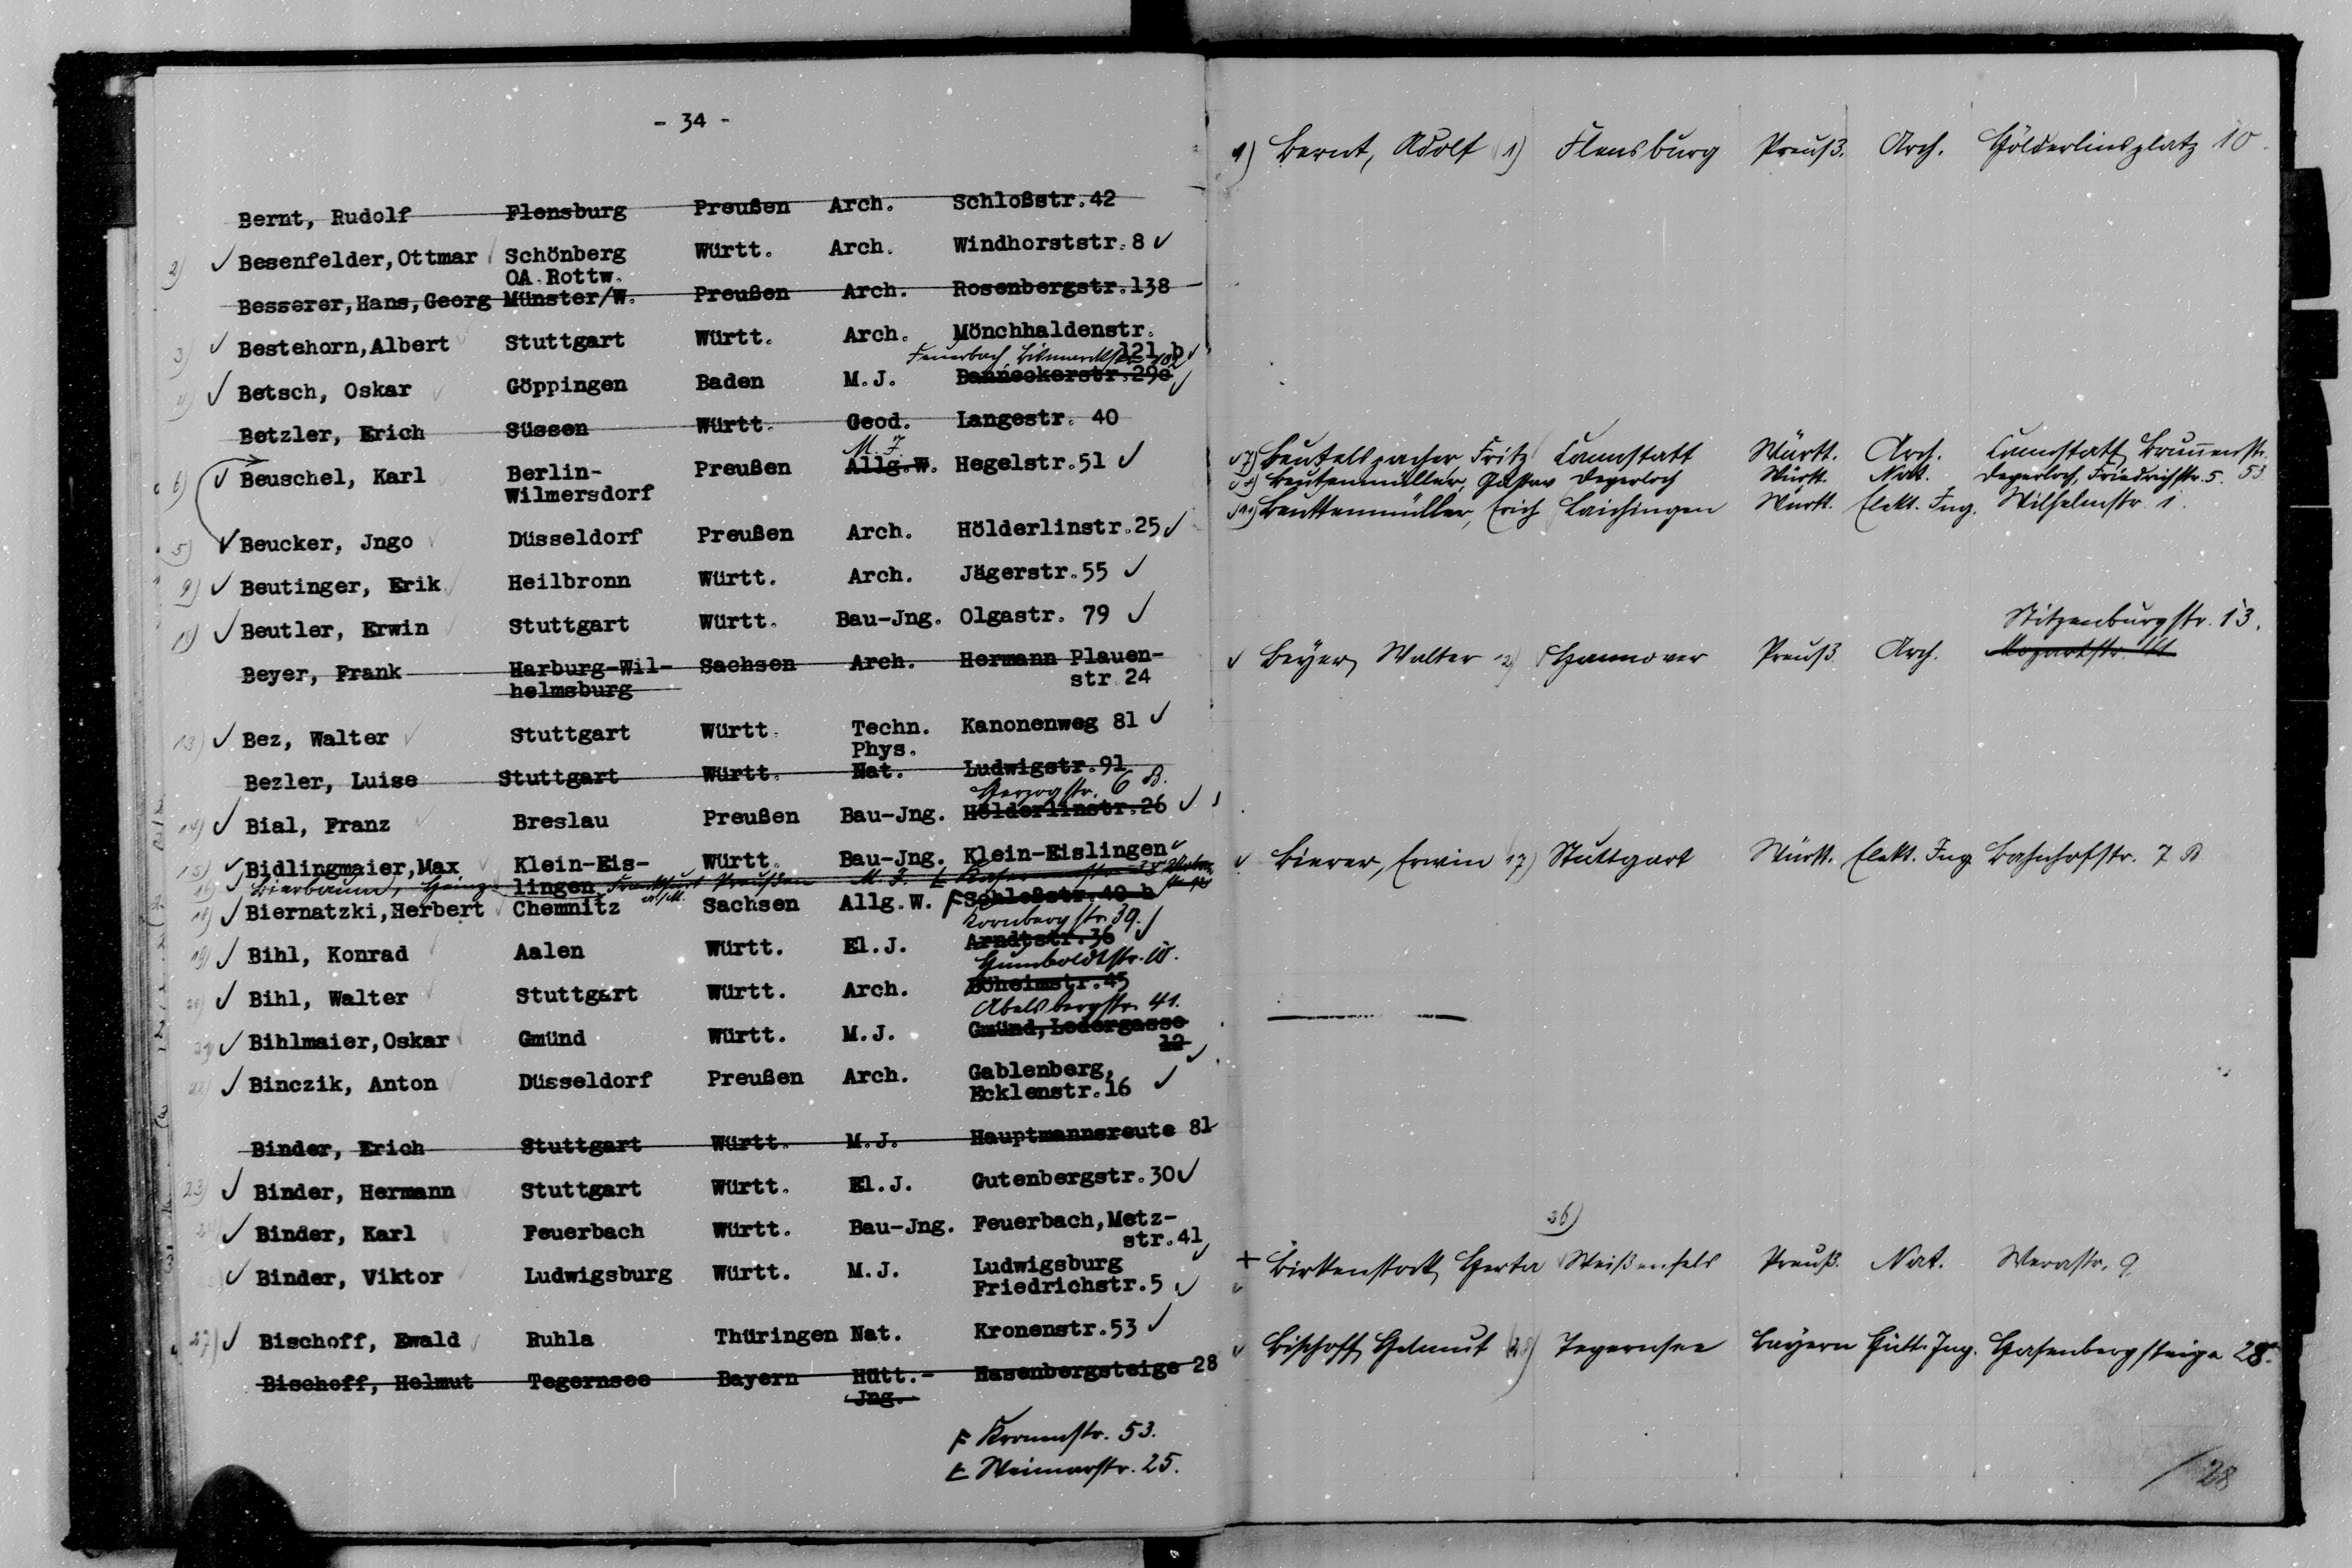 - 34 -
Bernt, Rudolf Flensburg Preußen Arch. Schloßstr.42
2) Besenfelder,Ottmar Schönberg Württ. Arch. Windhorststr.8
OA.Rottw.
Besserer,Hans,Georg Münster/W. Preußen Arch. Rosenbergstr.138
3) Bestehorn,Albert Stuttgart Württ. Arch. Mönchhaldenstr.
121 b
Feuerbach, Bismarckstr. 102
4) Betsch, Oskar Göppingen Baden M.J. Danneckerstr.29c
Betzler, Erich Süssen Württ. Geod. Langestr. 40
M. J.
6) Beuschel, Karl Berlin- Preußen Allg.W. Hegelstr.51
Wilmersdorf
5) Beucker, Jngo Düsseldorf Preußen Arch. Hölderlinstr.25
9) Beutinger, Erik Heilbronn Württ. Arch. Jägerstr.55
Beutler, Erwin Stuttgart Württ. Bau-Jng. Olgastr. 79
Beyer, Frank Harburg-Wil- Sachsen Arch. Hermann Plauen-
helmsburg str 24
13) Bez, Walter Stuttgart Württ. Techn. Kanonenweg 81
Phys.
Bezler, Luise Stuttgart Württ. Nat. Ludwigstr.91
Herzogstr. 6 B.
14) Bial, Franz Breslau Preußen Bau-Jng. Hölderlinstr.26
15) Bidlingmaier,Max Klein-Eis- Württ. Bau-Jng. Klein-Eislingen
lingen
16) Bierbaum, Heinz Frankfurt Preußen M. J.
18) Biernatzki,Herbert Chemnitz Sachsen Allg.W. F Schloßstr.40 b
Kornbergstr. 39.
19) Bihl, Konrad Aalen Württ. El.J. Arndtstr.36
Humboldtstr. 10.
20) Bihl, Walter Stuttgart Württ. Arch. Böheimstr.45
Abelsbergstr. 41.
21) Bihlmaier,Oskar Gmünd Württ. M.J. Gmünd,Ledergasse
12
22) Binczik, Anton Düsseldorf Preußen Arch. Gablenberg,
Ecklenstr.16
Binder, Erich Stuttgart Württ. M.J. Hauptmannsreute 81
23) Binder, Hermann Stuttgart Württ. El.J. Gutenbergstr.30
Binder, Karl Feuerbach Württ. Bau-Jng. Feuerbach,Metz-
str.41
Binder, Viktor Ludwigsburg Württ. M.J. Ludwigsburg
Friedrichstr.5
27) Bischoff, Ewald Ruhla Thüringen Nat. Kronenstr.53
Bischoff, Helmut Tegernsee Bayern Hütt.- Hasenbergsteige 28
Jng.
F Kronenstr. 53.
E Weimarstr. 25.
1) Bernt, Adolf 1) Flensburg Preuß. Arch. Hölderlinsplatz 10.
7) Beutelspacher Fritz Cannstatt Württ. Arch. Cannstatt, Brunnenstr.
53
8) Beutenmüller, Gustav Degerloch Württ. Nat. Degerloch, Friedrichstr. 5.
Beuttenmüller, Erich Laichingen Württ. Elekt. Ing. Wilhelmstr. 1.
Stitzenburgstr. 13.
Beyer, Walter 12) Hannover Preuß. Arch. Mozartstr.
Bierer, Erwin 17) Stuttgart Württ. Elekt. Ing. Bahnhofstr. 7 B
26)
Birkenstock, Herta Weißenfels Preuß. Nat. Werastr. 9.
Bischoff, Helmut 28) Tegernsee Bayern Hütt. Ing. Hasenbergsteige 28.
/ 28